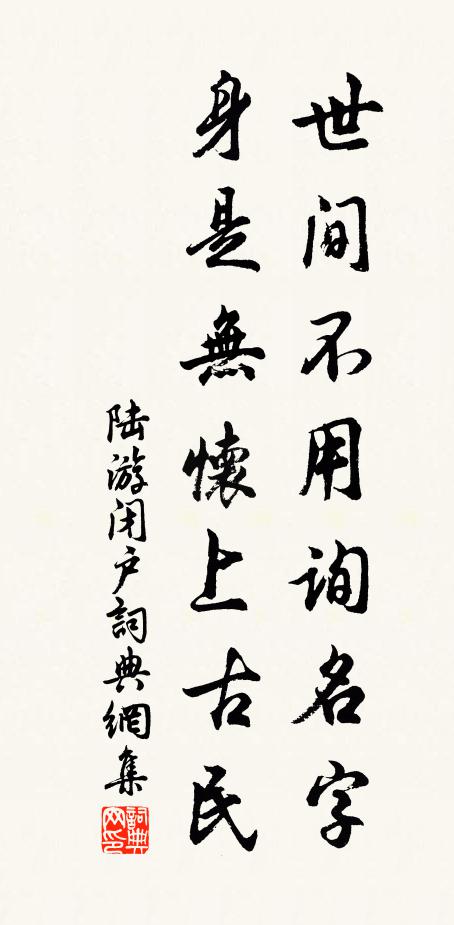 世間不用詢名字
身是無懷上古民
陆游闭户詞典網集
詞典网印